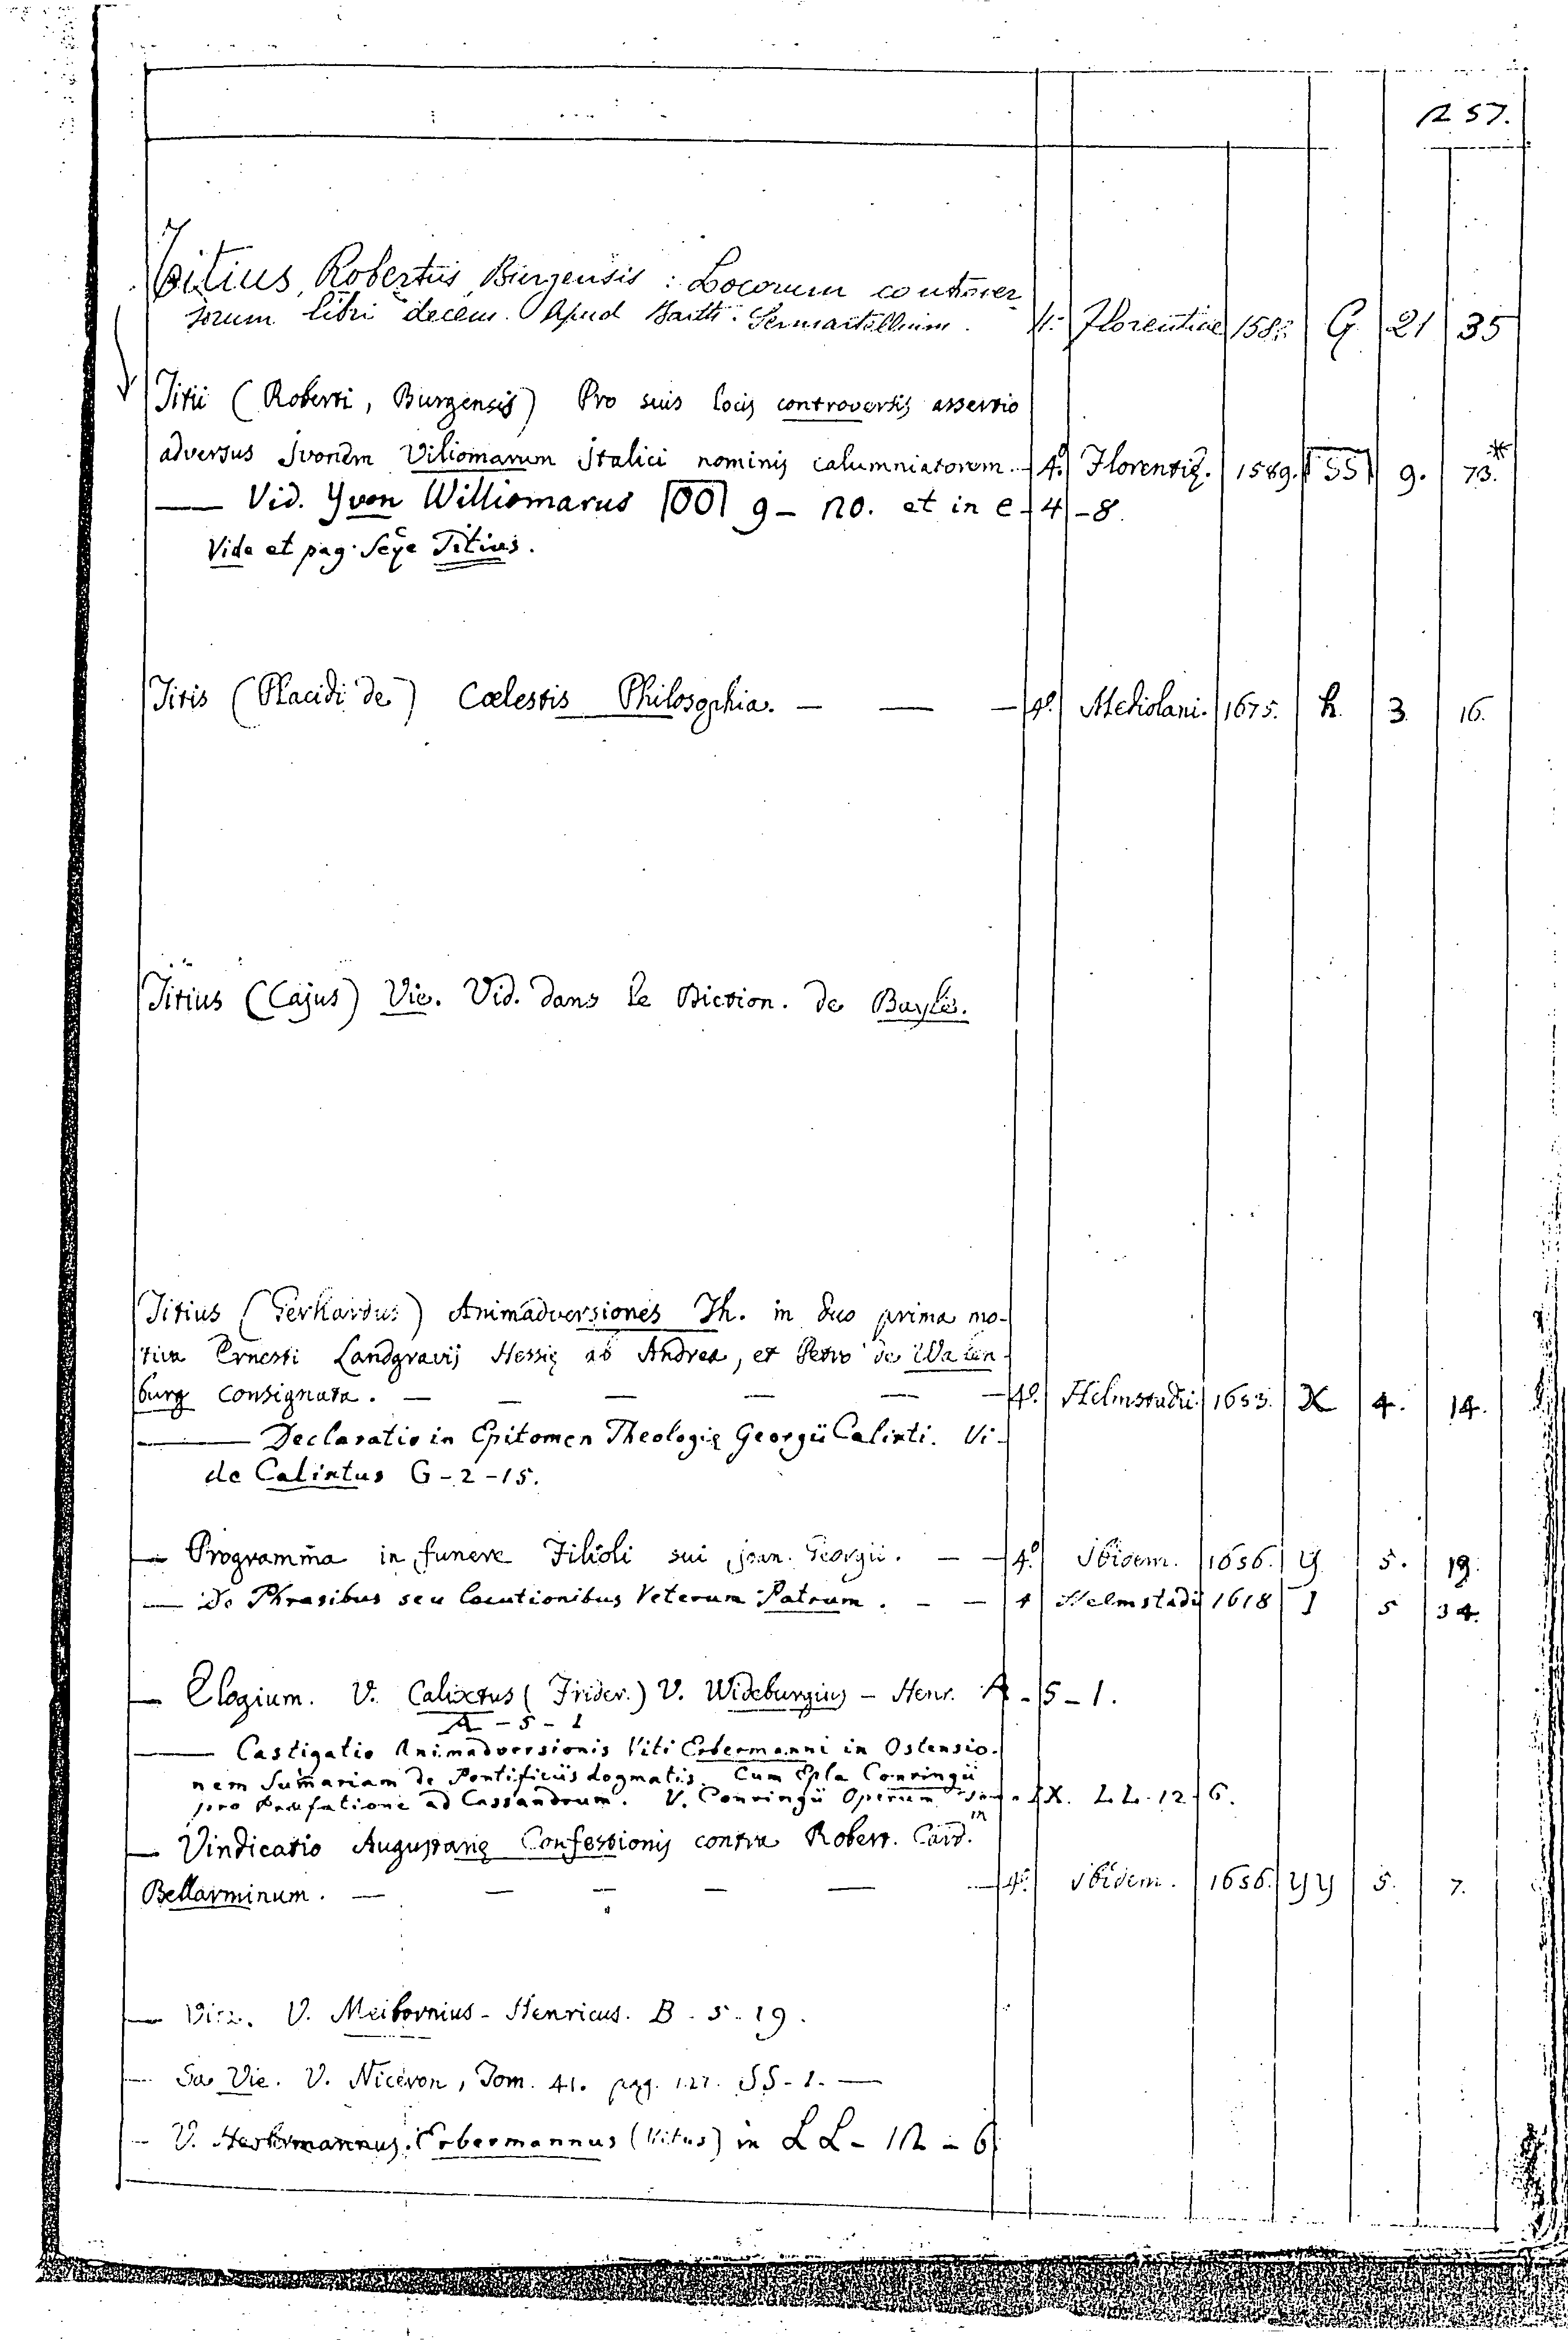 257.
Titius, Robertus, Burgensis : Locorum controver
sorum libri decem. Apud Barth. Sermartellium. 4. Florentiae 158 G 21 35
Titii (Roberti, Burgensis) Pro suis locis controversis assertio
adversus Ivonem Viliomarum Italici nominis calumniatorem. 4.º Florentię. 1589. SS 9. 73.*
— Vid. Yvon Williomarus |OO| 9 – 20. et in e – 4 – 8.
Vide et pag. Seqe Titius.
Titis (Placidi de) Cœlestis Philosophia. — — — 4º. Mediolani. 1675. h. 3. 16.
Titius (Cajus) Vie. Vid. dans le Diction. de Bayle.
Titius (Gerhardus) Animadversiones Th. in duo prima mo-
tiva Ernesti Landgravij Hessię ab Andrea, et Petro de Walen-
burg consignata. — — — — — 4º. Helmstadii. 1653. X 4. 14.
— Declaratio in Epitomen Theologię Georgii Calixti. Vi-
de Calixtus G – 2 – 15.
— Programma in funere Filioli sui Joan. Georgii. — — 4.º Ibidem. 1656. y 5. 19.
— De Phrasibus seu locutionibus Veterum Patrum. — — 4 Helmstadij 1618 I 5 34.
— Elogium. V. Calixtus (Frider.) V. Wideburgius – Henr. A – 5 – 1.
A – 5 – 1
— Castigatio Animadversionis Viti Erbermanni in Ostensio-
nem Sumariam de Pontificiis dogmatis. Cum Epla Conringii
pro Praefatione ad Cassandrum. V. Conringii Operum IX. LL. 12. 6.
— Vindicatio Augustanę Confessionis contra Robert. Card.in
Bellarminum. — — — — — — 4º. Ibidem. 1656. yy 5. 7.
— Vita. V. Meibornius – Henricus. B – 5 – 19.
— Sa Vie. V. Niceron, Tom. 41. pag. 127. SS – 1. —
— V. Herbermannus. Erbermannus (Vitus) in LL – 12 – 6